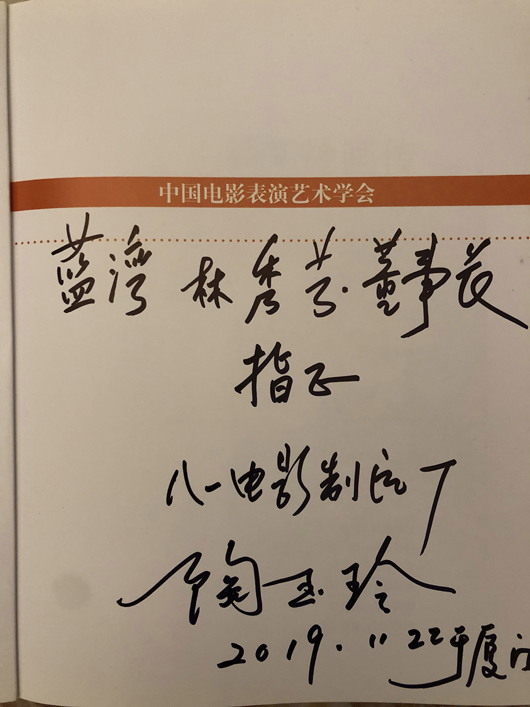 中国电影表演艺术学会
蓝湾 林秀芬 董事长
指正
八一电影制片厂
陶玉玲
2019.11.22于厦门